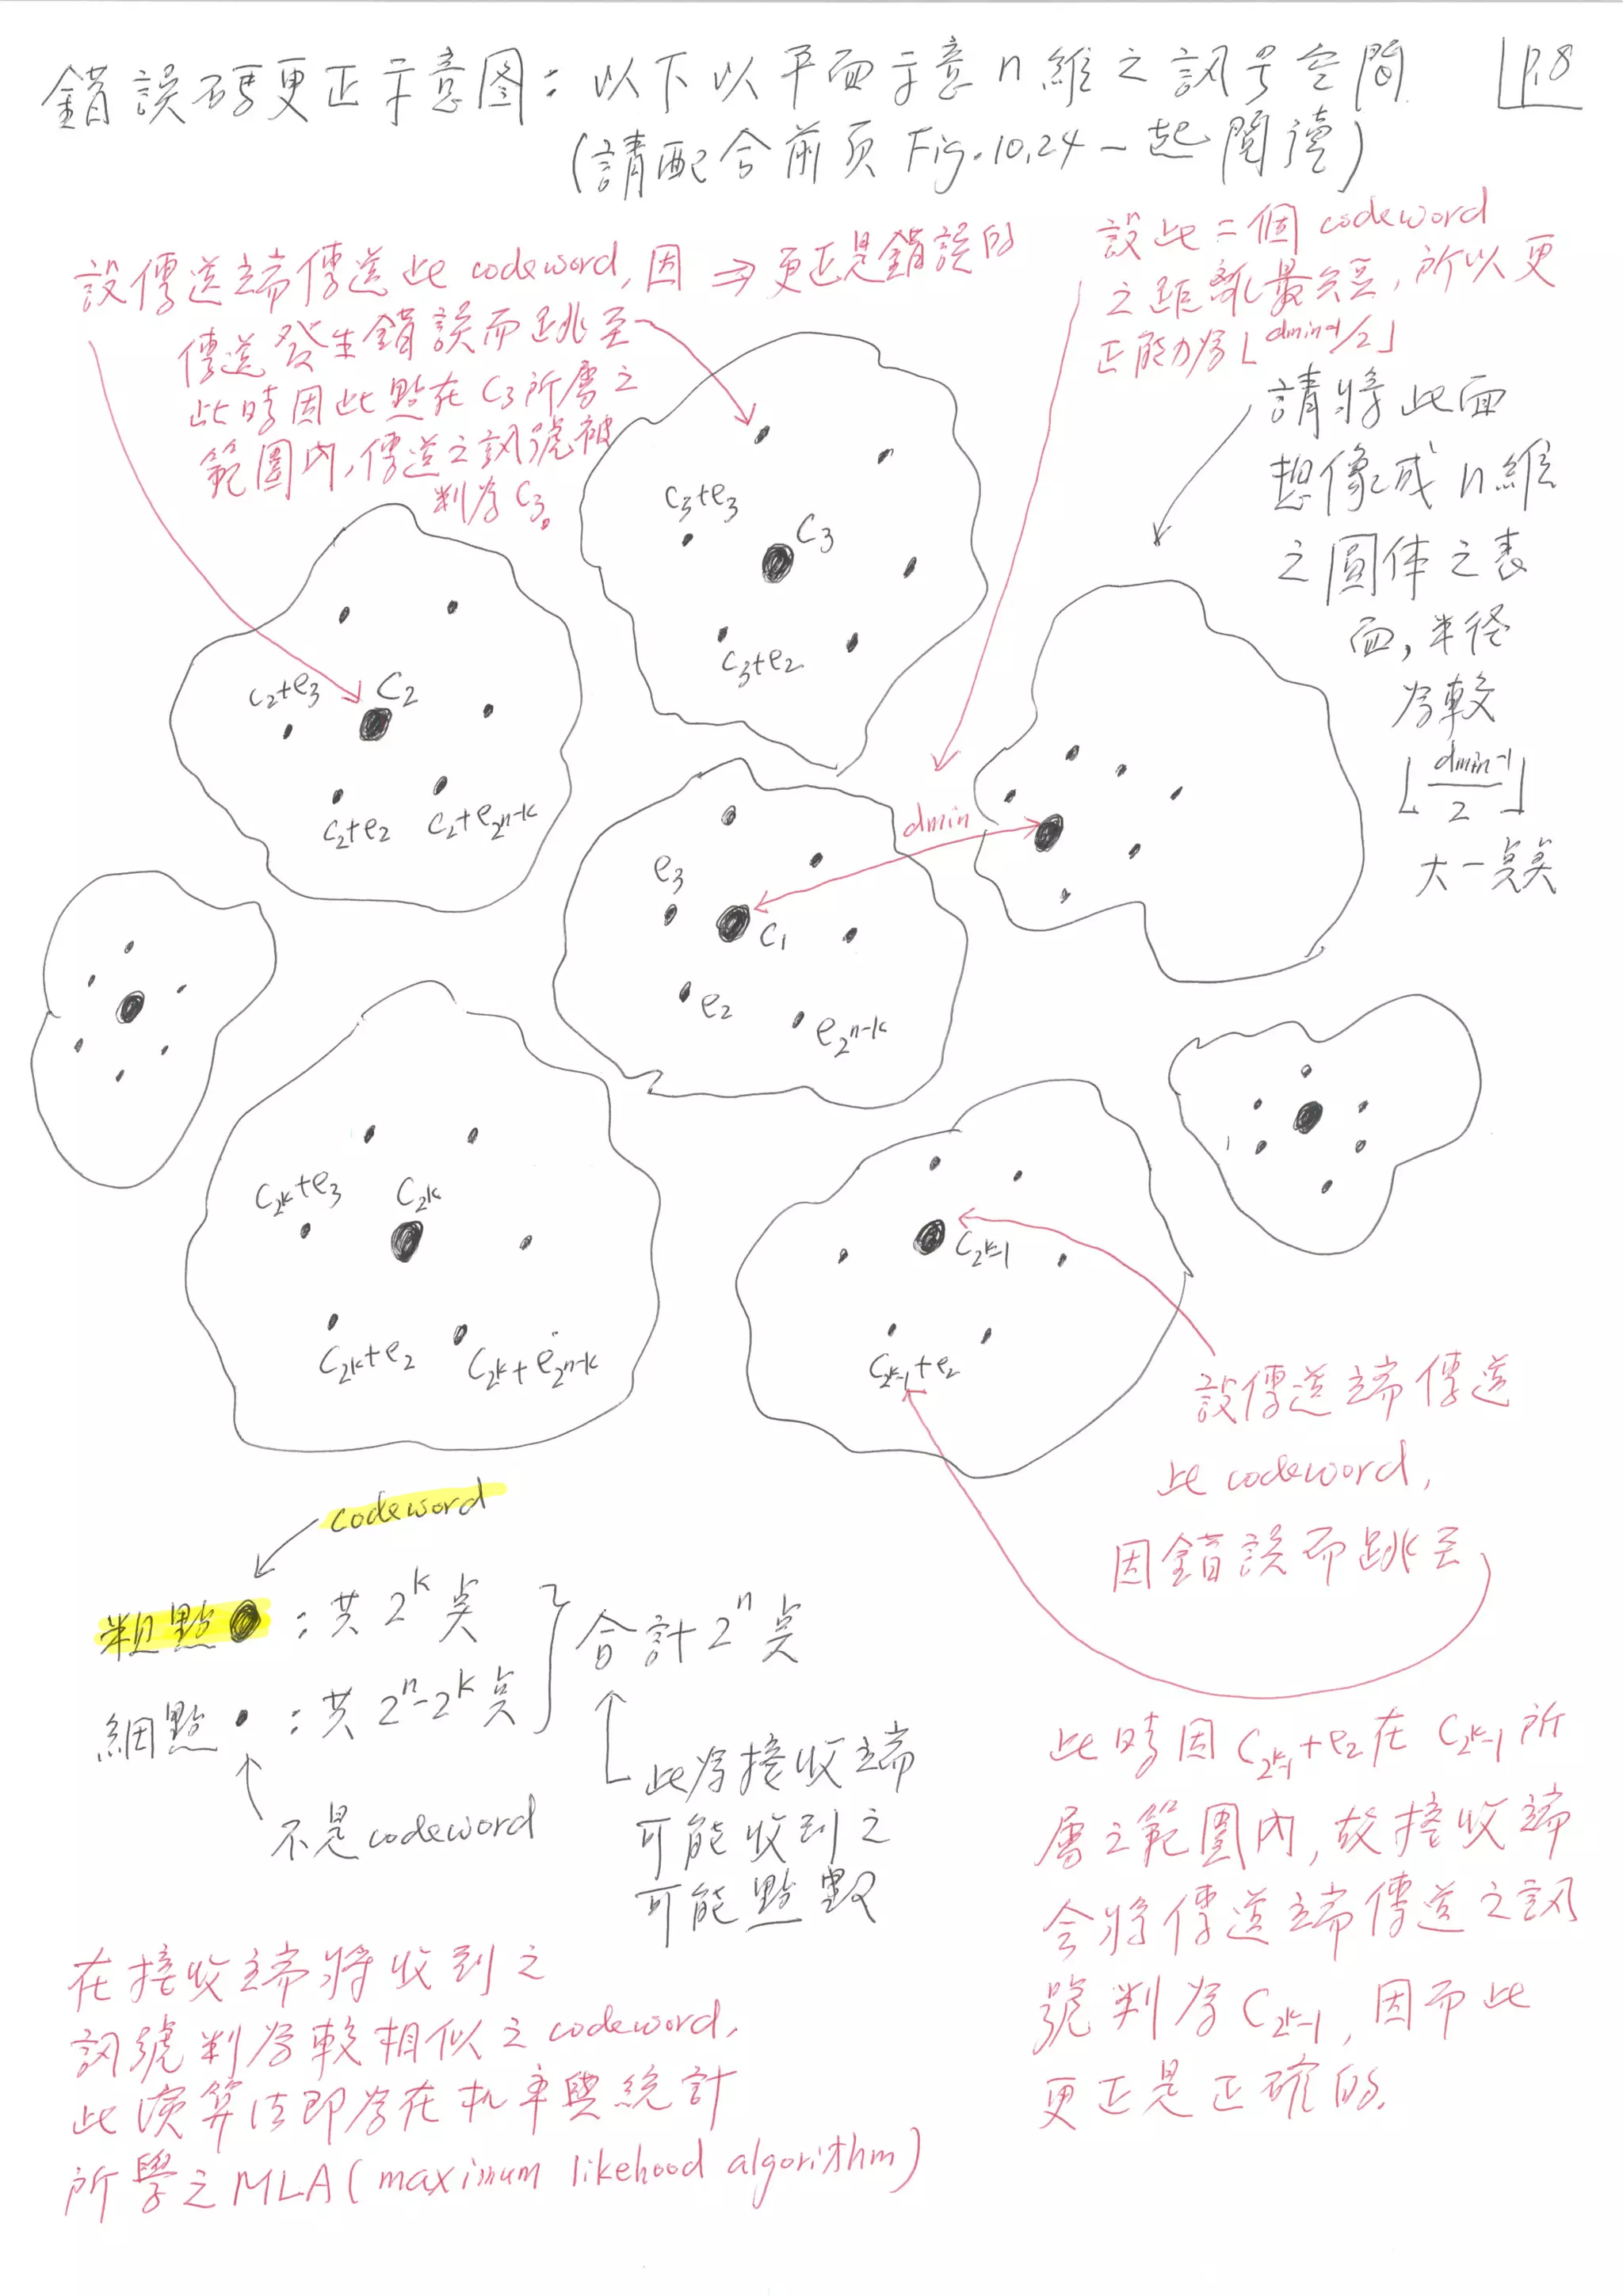 錯誤碼更正示意图：以下以平面示意n維之訊号空間
P.8
(請配合前頁 Fig.10.24 一起閱讀)
設傳送端傳送此 codeword, 因 ⇒ 更正是錯誤的
傳送發生錯誤而跳至
此時因此點在 C3 所屬之
範圍內, 傳送之訊號被
判為 C3。
設此二個 codeword
之距離最短, 所以更
正能力為⌊dmin-1/2⌋
請將此面
想像成 n 維
之圓体之表
面, 半径
為較
⌊dmin-1/2⌋
大一点矣
C3+e3
C3
C3+e2
C2+e3
C2
C2+e2
C2+e2n-k
dmin
e3
C1
e2
e2n-k
C2k+e3
C2k
C2k+e2
C2k+e2n-k
C2k-1
C2k-1+e2
設傳送端傳送
此 codeword,
因錯誤而跳至
codeword
粗點 ●：共 2^k 点
細點 •：共 2^n-2^k 点
合計 2^n 点
不是 codeword
此為接收端
可能收到之
可能點數
此時因 C2k-1+e2 在 C2k-1 所
屬之範圍內, 故接收端
會將傳送端傳送之訊
號判為 C2k-1, 因而此
更正是正確的.
在接收端將收到之
訊號判為較相似之 codeword,
此演算法即為在机率與統計
所學之 MLA (maximum likehood algorithm)